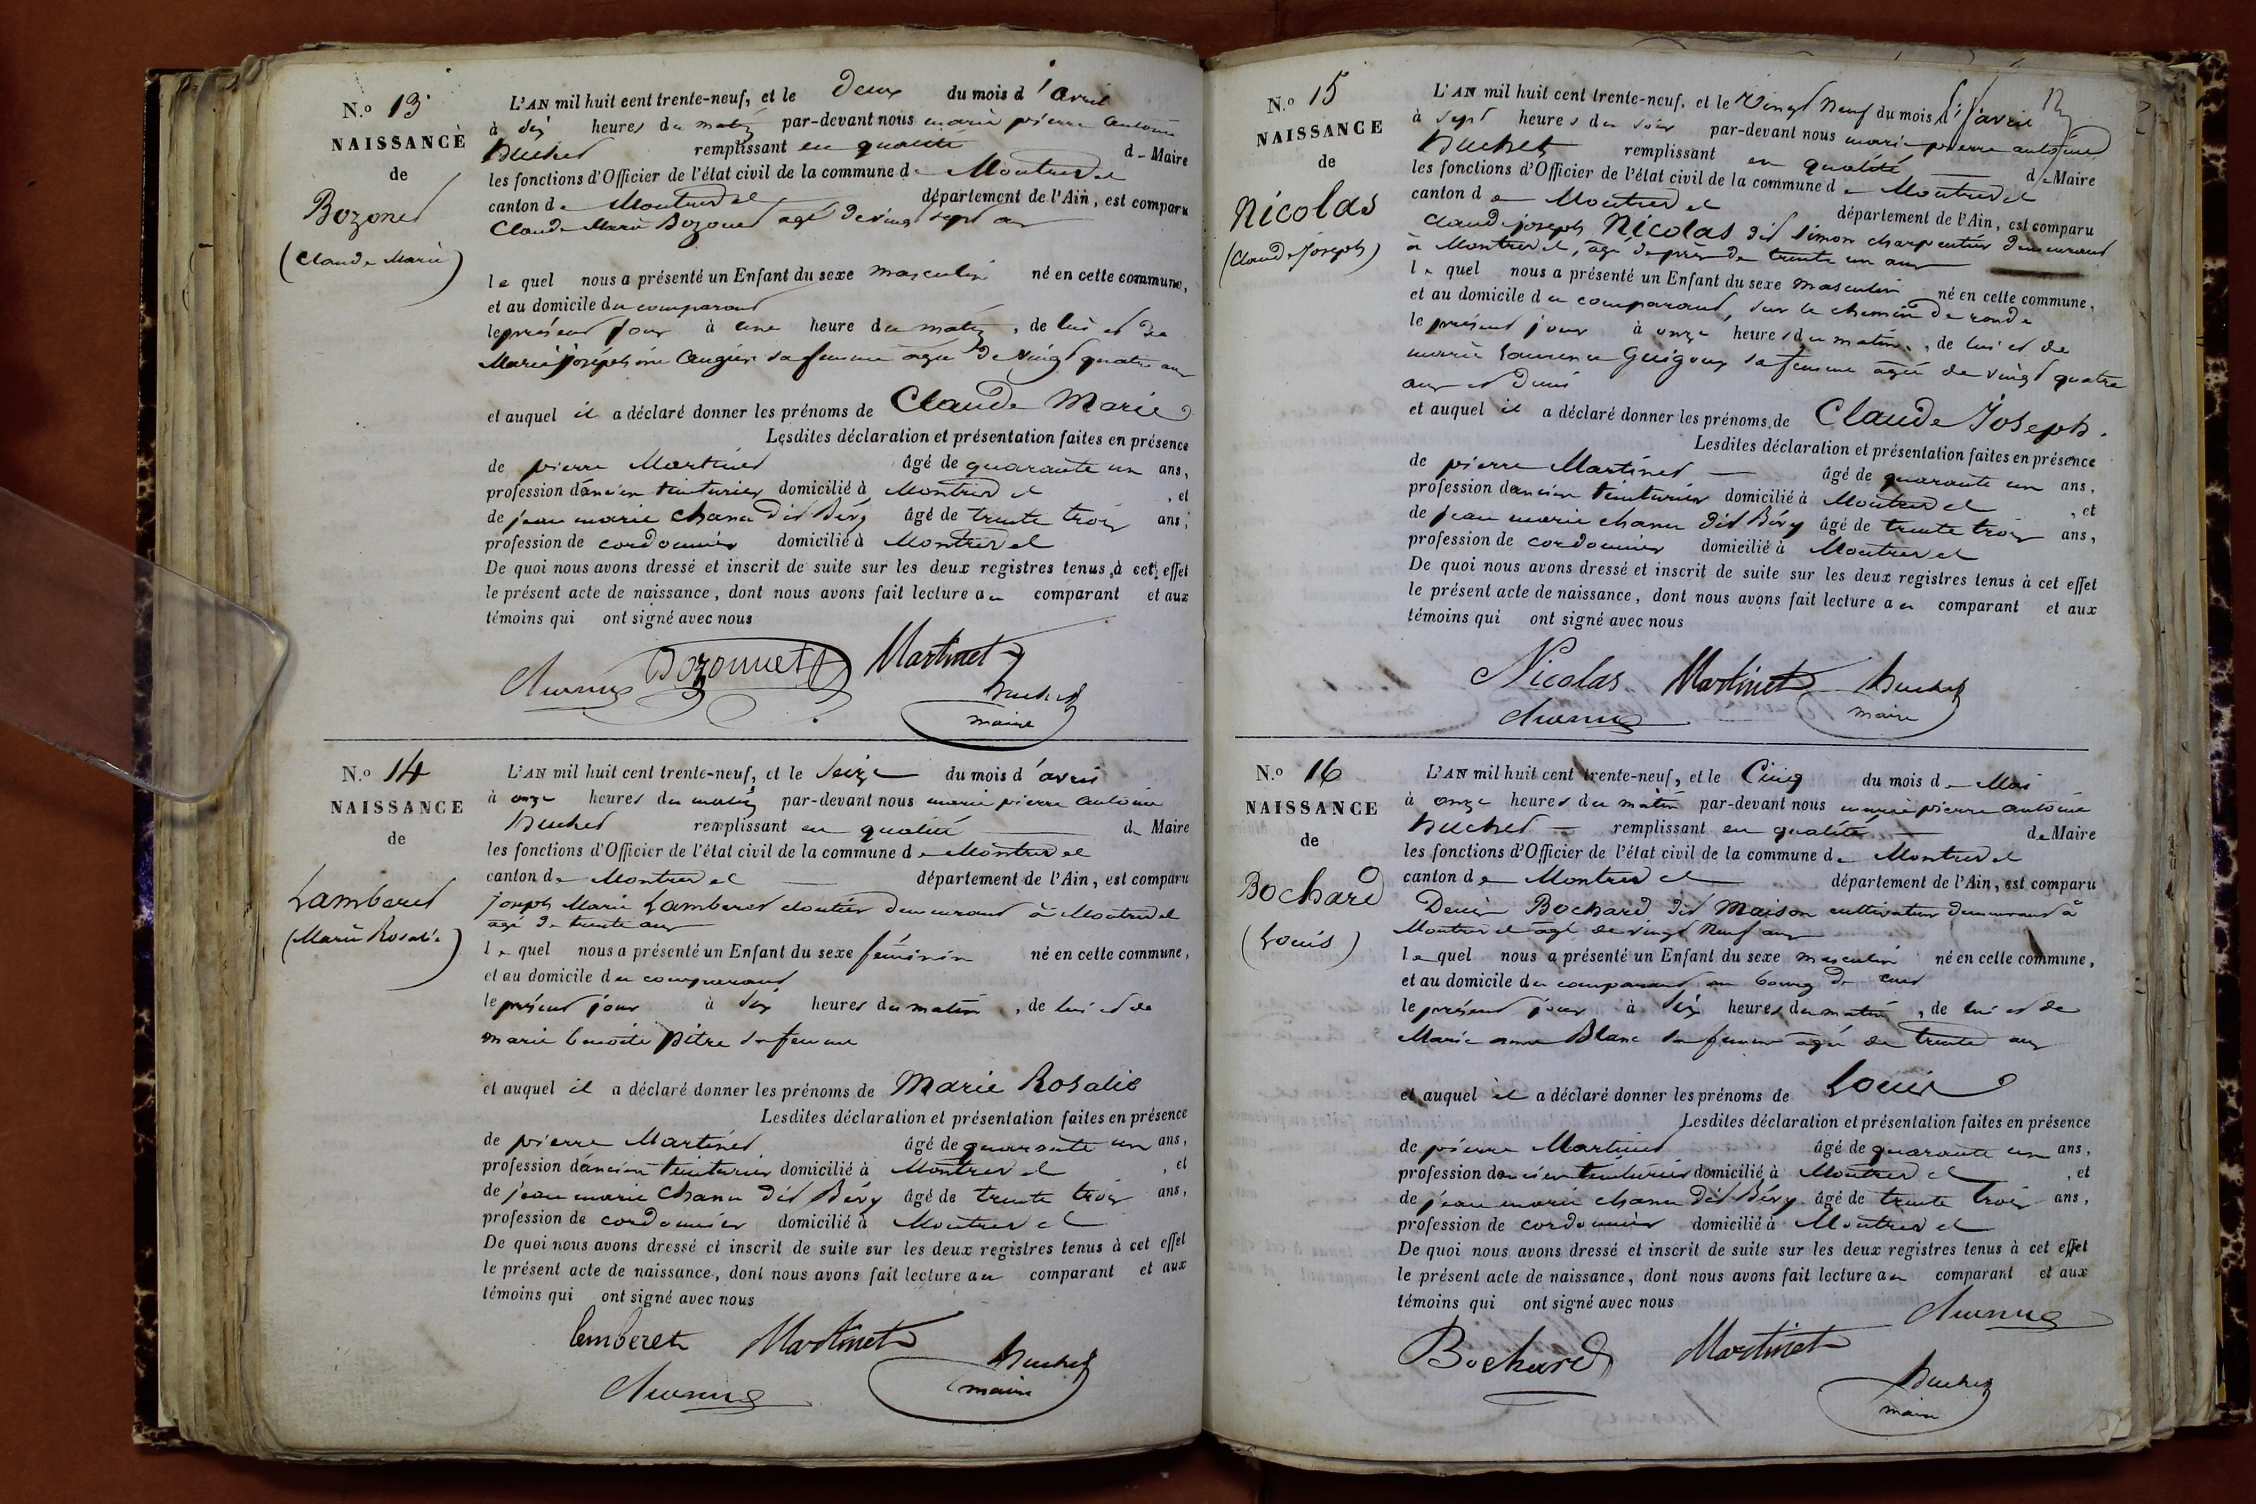 N.º 13
NAISSANCE
de
Bozonet
(Claude Marie)
L'AN mil huit cent trente-neuf, et le deux du mois d'avril
à dix heures du matin par-devant nous marie pierre antoine
Buchet remplissant en qualité de Maire
les fonctions d'Officier de l'état civil de la commune de Montrevel
canton de Montrevel département de l'Ain, est comparu
Claude Marie Bozonet agé de vingt sept ans
lequel nous a présenté un Enfant du sexe masculin né en cette commune,
et au domicile du comparant
le présent jour à une heure du matin, de lui et de
Marie joséphine Augier sa femme agée de vingt quatre ans
et auquel il a déclaré donner les prénoms de Claude Marie
Lesdites déclaration et présentation faites en présence
de pierre Martinet âgé de quarante un ans,
profession d'ancien teinturier domicilié à Montrevel, et
de jean marie Chanu dit Béry âgé de trente trois ans,
profession de cordonnier domicilié à Montrevel
De quoi nous avons dressé et inscrit de suite sur les deux registres tenus à cet effet
le présent acte de naissance, dont nous avons fait lecture au comparant et aux
témoins qui ont signé avec nous
Bozonnet Martinet
Buchet
maire
N.º 14
NAISSANCE
de
Lamberet
(Marie Rosalie)
L'AN mil huit cent trente-neuf, et le Seize du mois d'avril
à onze heures du matin par-devant nous marie pierre antoine
Buchet remplissant en qualité de Maire
les fonctions d'Officier de l'état civil de la commune de Montrevel
canton de Montrevel département de l'Ain, est comparu
joseph Marie Lamberet cloutier demeurant à Montrevel
agé de trente ans
lequel nous a présenté un Enfant du sexe féminin né en cette commune,
et au domicile du comparant
le présent jour à dix heures du matin, de lui et de
marie benoite pitre sa femme
et auquel il a déclaré donner les prénoms de Marie Rosalie
Lesdites déclaration et présentation faites en présence
de pierre Martinet âgé de quarante un ans,
profession d'ancien teinturier domicilié à Montrevel, et
de jean marie Chanu dit Béry âgé de trente trois ans,
profession de cordonnier domicilié à Montrevel
De quoi nous avons dressé et inscrit de suite sur les deux registres tenus à cet effet
le présent acte de naissance, dont nous avons fait lecture au comparant et aux
témoins qui ont signé avec nous
Lemberet Martinet
Buchet
maire
N.º 15
NAISSANCE
de
Nicolas
(Claude Joseph)
L'AN mil huit cent trente-neuf, et le Vingt Neuf du mois d'avril
à sept heures du soir par-devant nous marie pierre antoine
Buchet remplissant en qualité de Maire
les fonctions d'Officier de l'état civil de la commune de Montrevel
canton de Montrevel département de l'Ain, est comparu
Claude joseph Nicolas dit simon charpentier demeurant
à Montrevel, agé de près de trente un ans
lequel nous a présenté un Enfant du sexe masculin né en cette commune,
et au domicile du comparant, sur le chemin de ronde
le présent jour à onze heures du matin, de lui et de
marie Laurence Guigoux sa femme agée de vingt quatre
ans et demi
et auquel il a déclaré donner les prénoms de Claude Joseph.
Lesdites déclaration et présentation faites en présence
de pierre Martinet âgé de quarante un ans,
profession d'ancien teinturier domicilié à Montrevel, et
de jean marie chanu dit Béry âgé de trente trois ans,
profession de cordonnier domicilié à Montrevel
De quoi nous avons dressé et inscrit de suite sur les deux registres tenus à cet effet
le présent acte de naissance, dont nous avons fait lecture au comparant et aux
témoins qui ont signé avec nous
Nicolas Martinet Buchet
maire
N.º 16
NAISSANCE
de
Bochard
(Louis)
L'AN mil huit cent trente-neuf, et le Cinq du mois de Mai
à onze heures du matin par-devant nous marie pierre antoine
Buchet remplissant en qualité de Maire
les fonctions d'Officier de l'état civil de la commune de Montrevel
canton de Montrevel département de l'Ain, est comparu
Denis Bochard dit Maison cultivateur demeurant à
Montrevel agé de vingt Neuf ans
lequel nous a présenté un Enfant du sexe masculin né en cette commune,
et au domicile du comparant au bourg de cuet
le présent jour à six heures du matin, de lui et de
Marie anne Blanc sa femme agée de trente ans
et auquel il a déclaré donner les prénoms de Louis
Lesdites déclaration et présentation faites en présence
de pierre Martinet âgé de quarante un ans,
profession d'ancien teinturier domicilié à Montrevel, et
de jean marie chanu dit Béry âgé de trente trois ans,
profession de cordonnier domicilié à Montrevel
De quoi nous avons dressé et inscrit de suite sur les deux registres tenus à cet effet
le présent acte de naissance, dont nous avons fait lecture au comparant et aux
témoins qui ont signé avec nous
Bochard Martinet
Buchet
maire